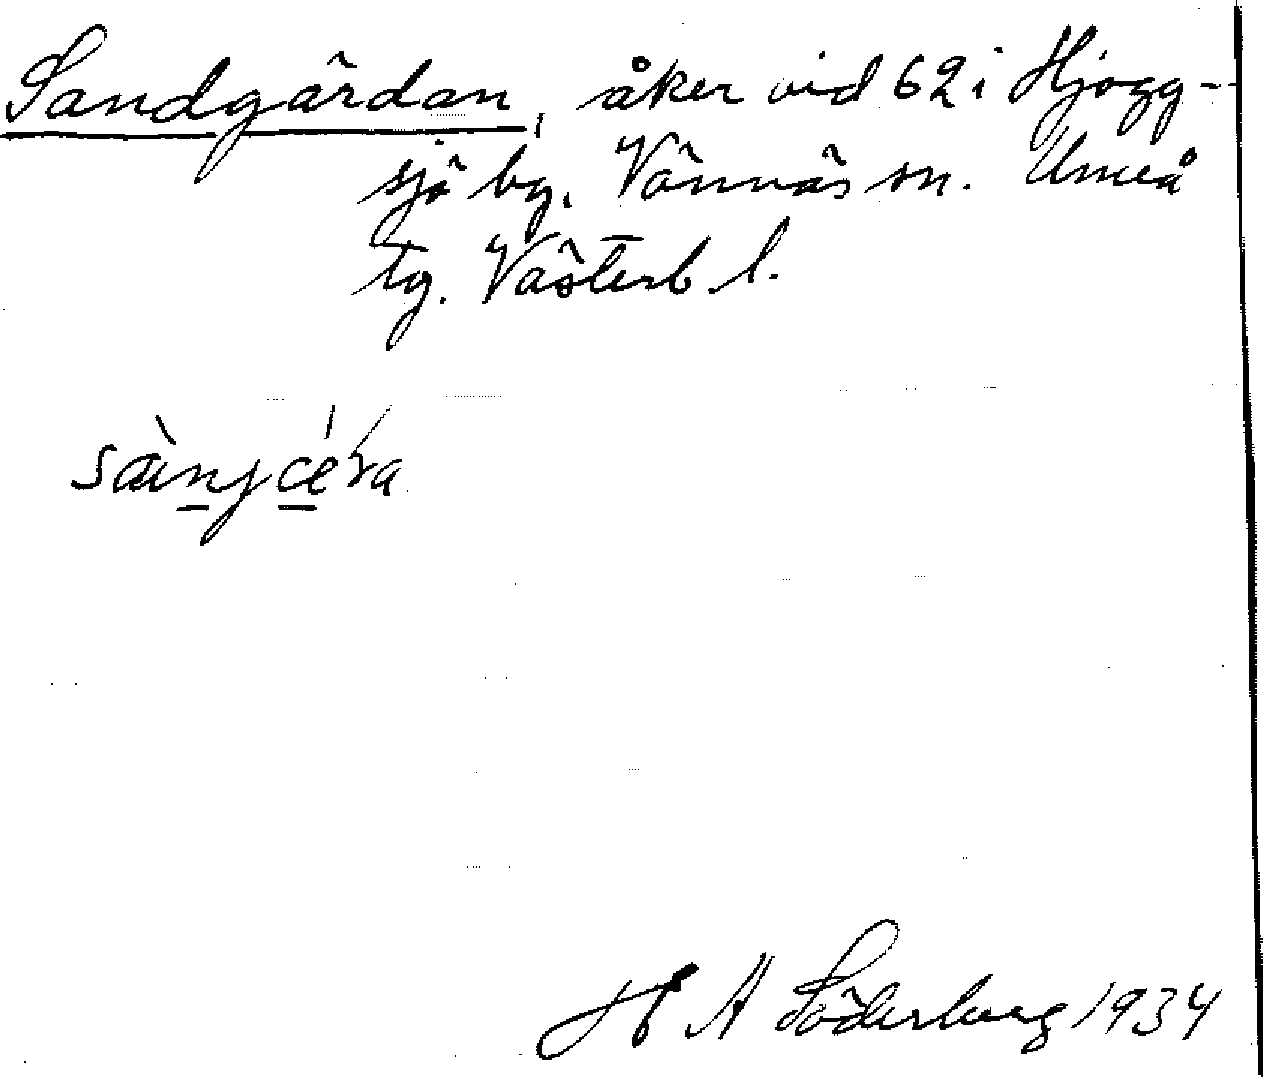 Sandgärdan, åker vid 62 i Hjogg-
sjö by. Vännäs sn. Umeå
tg. Västerb. l.
H A Söderberg 1934